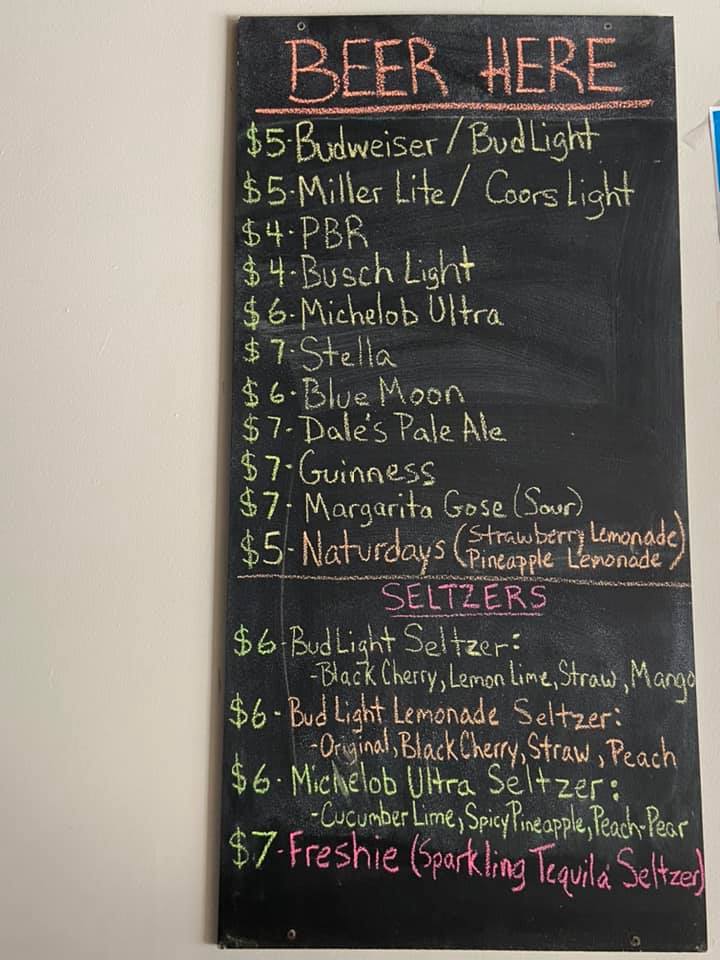 BEER HERE
$5-Budweiser/BudLight
$5-Miller Lite/ Coors Light
$4-PBR
$4-Busch Light
$6-Michelob Ultra
$7-Stella
$6-Blue Moon
$7-Dale's Pale Ale
$7-Guinness
$7-Margarita Gose (Sour)
$5-Naturdays (Strawberry Lemonade
Pineapple Lemonade)
SELTZERS
$6-BudLight Seltzer:
-Black Cherry, Lemon Lime, Straw, Mango
$6-Bud Light Lemonade Seltzer:
-Original, Black Cherry, Straw, Peach
$6-Michelob Ultra Seltzer:
-Cucumber Lime, Spicy Pineapple, Peach-Pear
$7-Freshie (Sparkling Tequila Seltzer)